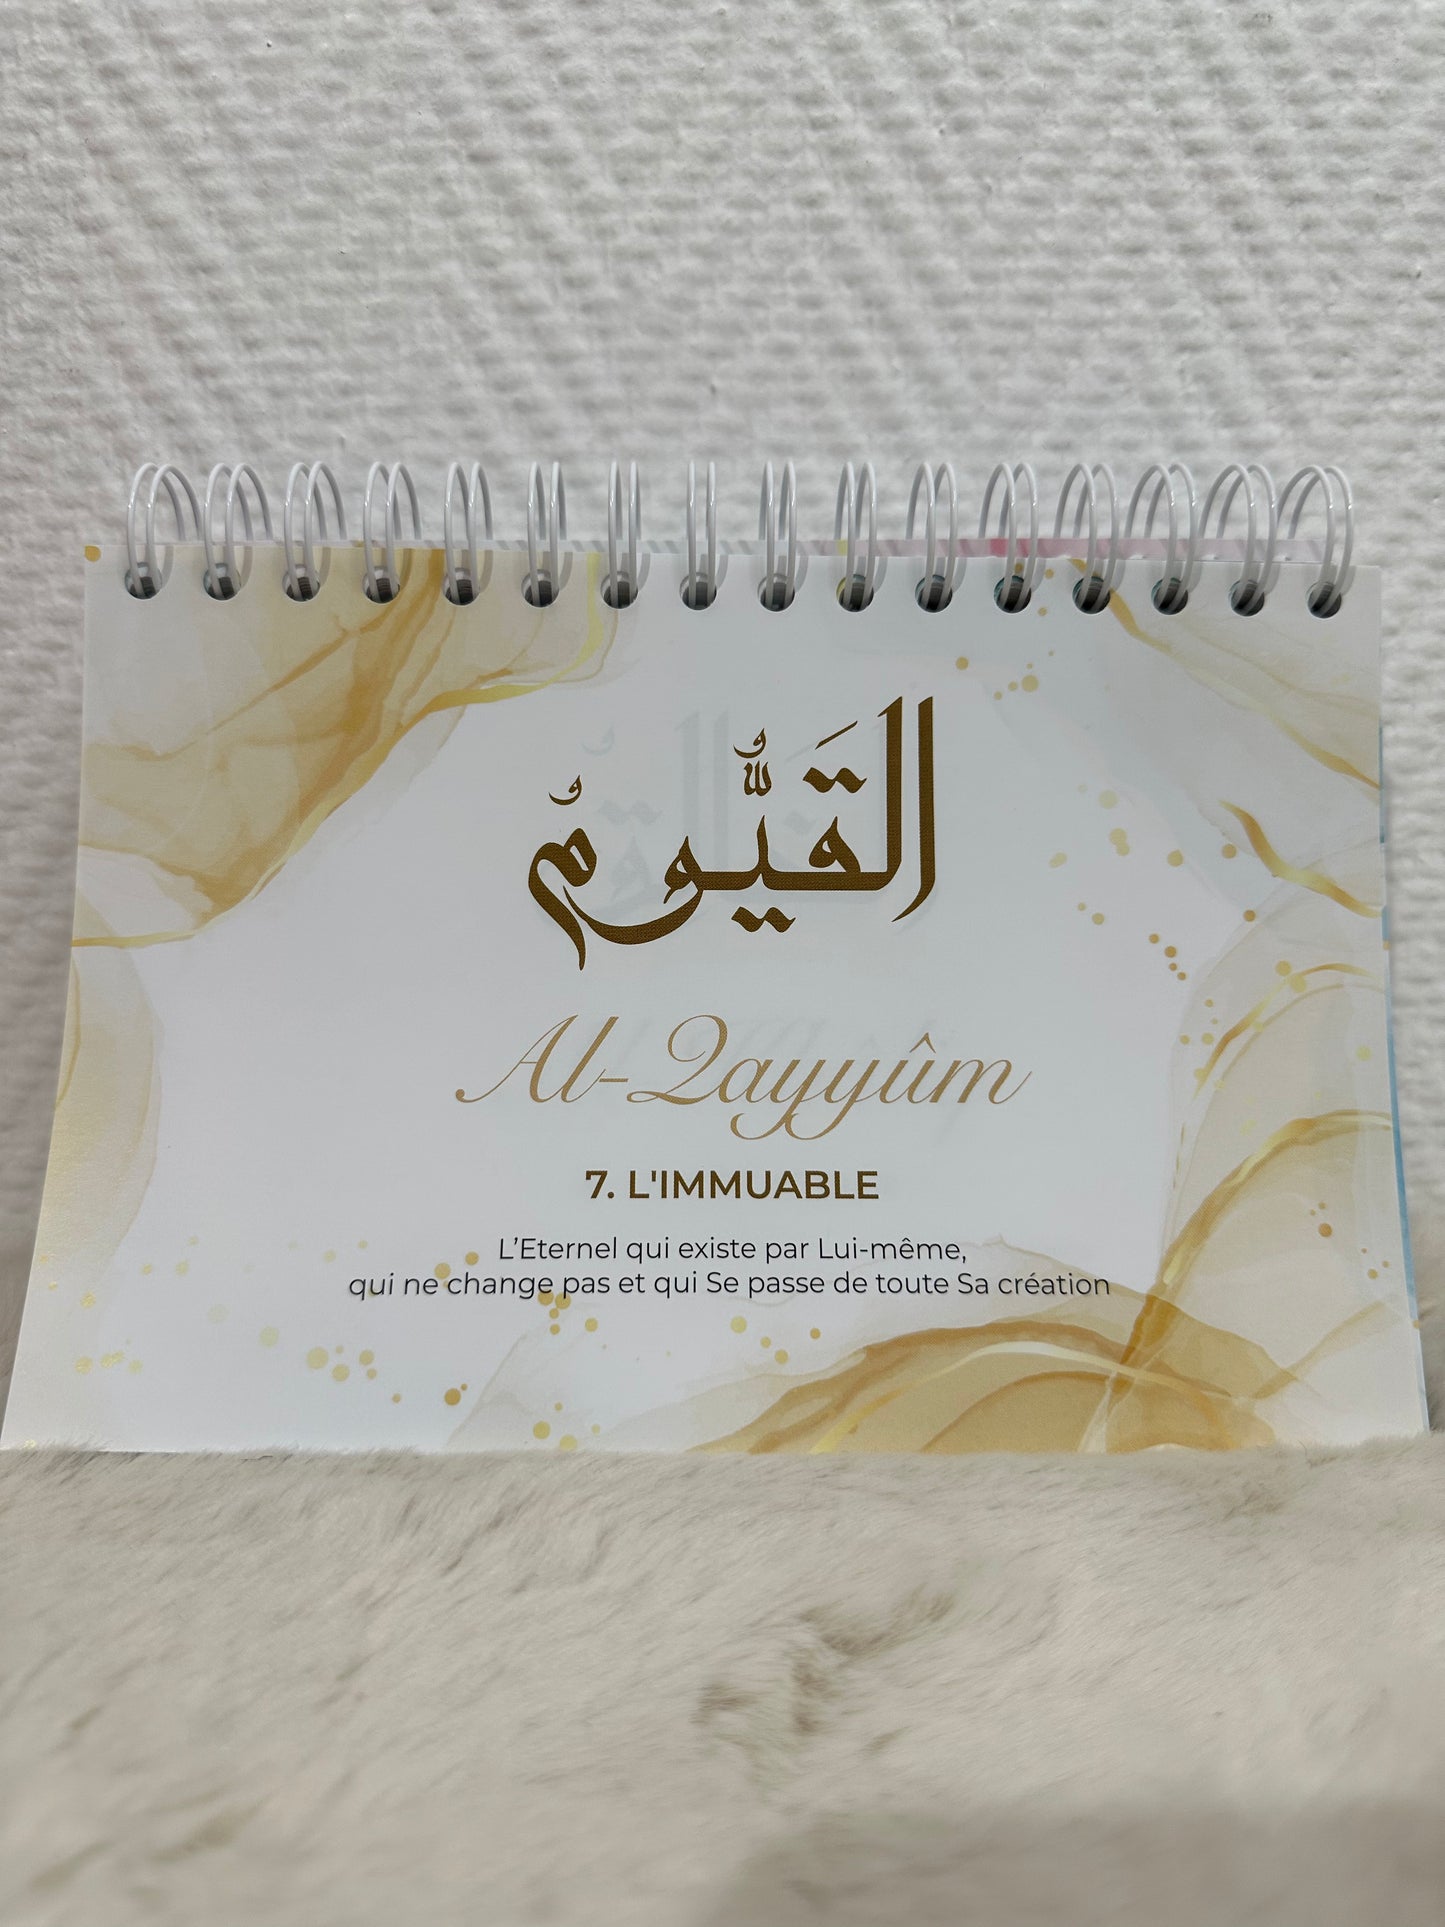 القَيُّومُ
Al-Qayyûm
7. L'IMMUABLE
L’Eternel qui existe par Lui-même,
qui ne change pas et qui Se passe de toute Sa création